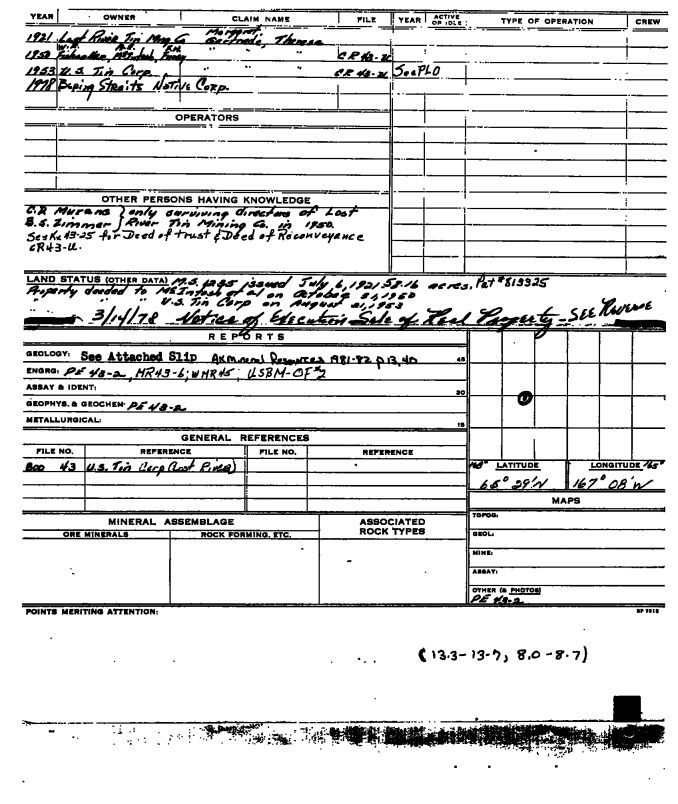 YEAR OWNER CLAIM NAME FILE YEAR ACTIVE OR IDLE TYPE OF OPERATION CREW
1921 Lost River Tin Mng Co Margaret, Gertrude, Theresa
1950 McIntosh, " " CR 43-U
1953 U.S. Tin Corp. " " CR 43-U See PLO
1978 Bering Straits Native Corp.
OPERATORS
OTHER PERSONS HAVING KNOWLEDGE
C.R. Murans } only surviving directors of Lost
B.S. Zimmer } River Tin Mining Co. in 1950.
See Kx 43-25 for Deed of Trust & Deed of Reconveyance
CR43-U.
LAND STATUS (OTHER DATA) M.S. 1295 issued July 6, 1921 58.16 acres. Pat # 813325
Property deeded to McIntosh et al on October 1950
" " U.S. Tin Corp on August 21, 1953
3/14/78 Notice of Execution Sale of Real Property - SEE Reverse
REPORTS
GEOLOGY: See Attached Slip AK Mineral Resources 1981-82 p13,40 45
ENGRG: PE 43-2, MR43-6; WMR45; USBM-OF#2
ASSAY & IDENT: 30
GEOPHYS. & GEOCHEM: PE 43-2
METALLURGICAL: 15
GENERAL REFERENCES
FILE NO. REFERENCE FILE NO. REFERENCE
800 43 U.S. Tin Corp (Lost River)
168° LATITUDE LONGITUDE 165°
65° 29'N 167° 08'W
MAPS
MINERAL ASSEMBLAGE ASSOCIATED ROCK TYPES
ORE MINERALS ROCK FORMING, ETC.
TOPOG:
GEOL:
MINE:
ASSAY:
OTHER (& PHOTOS)
PE 43-2
POINTS MERITING ATTENTION:
(13.3-13.7, 8.0-8.7)